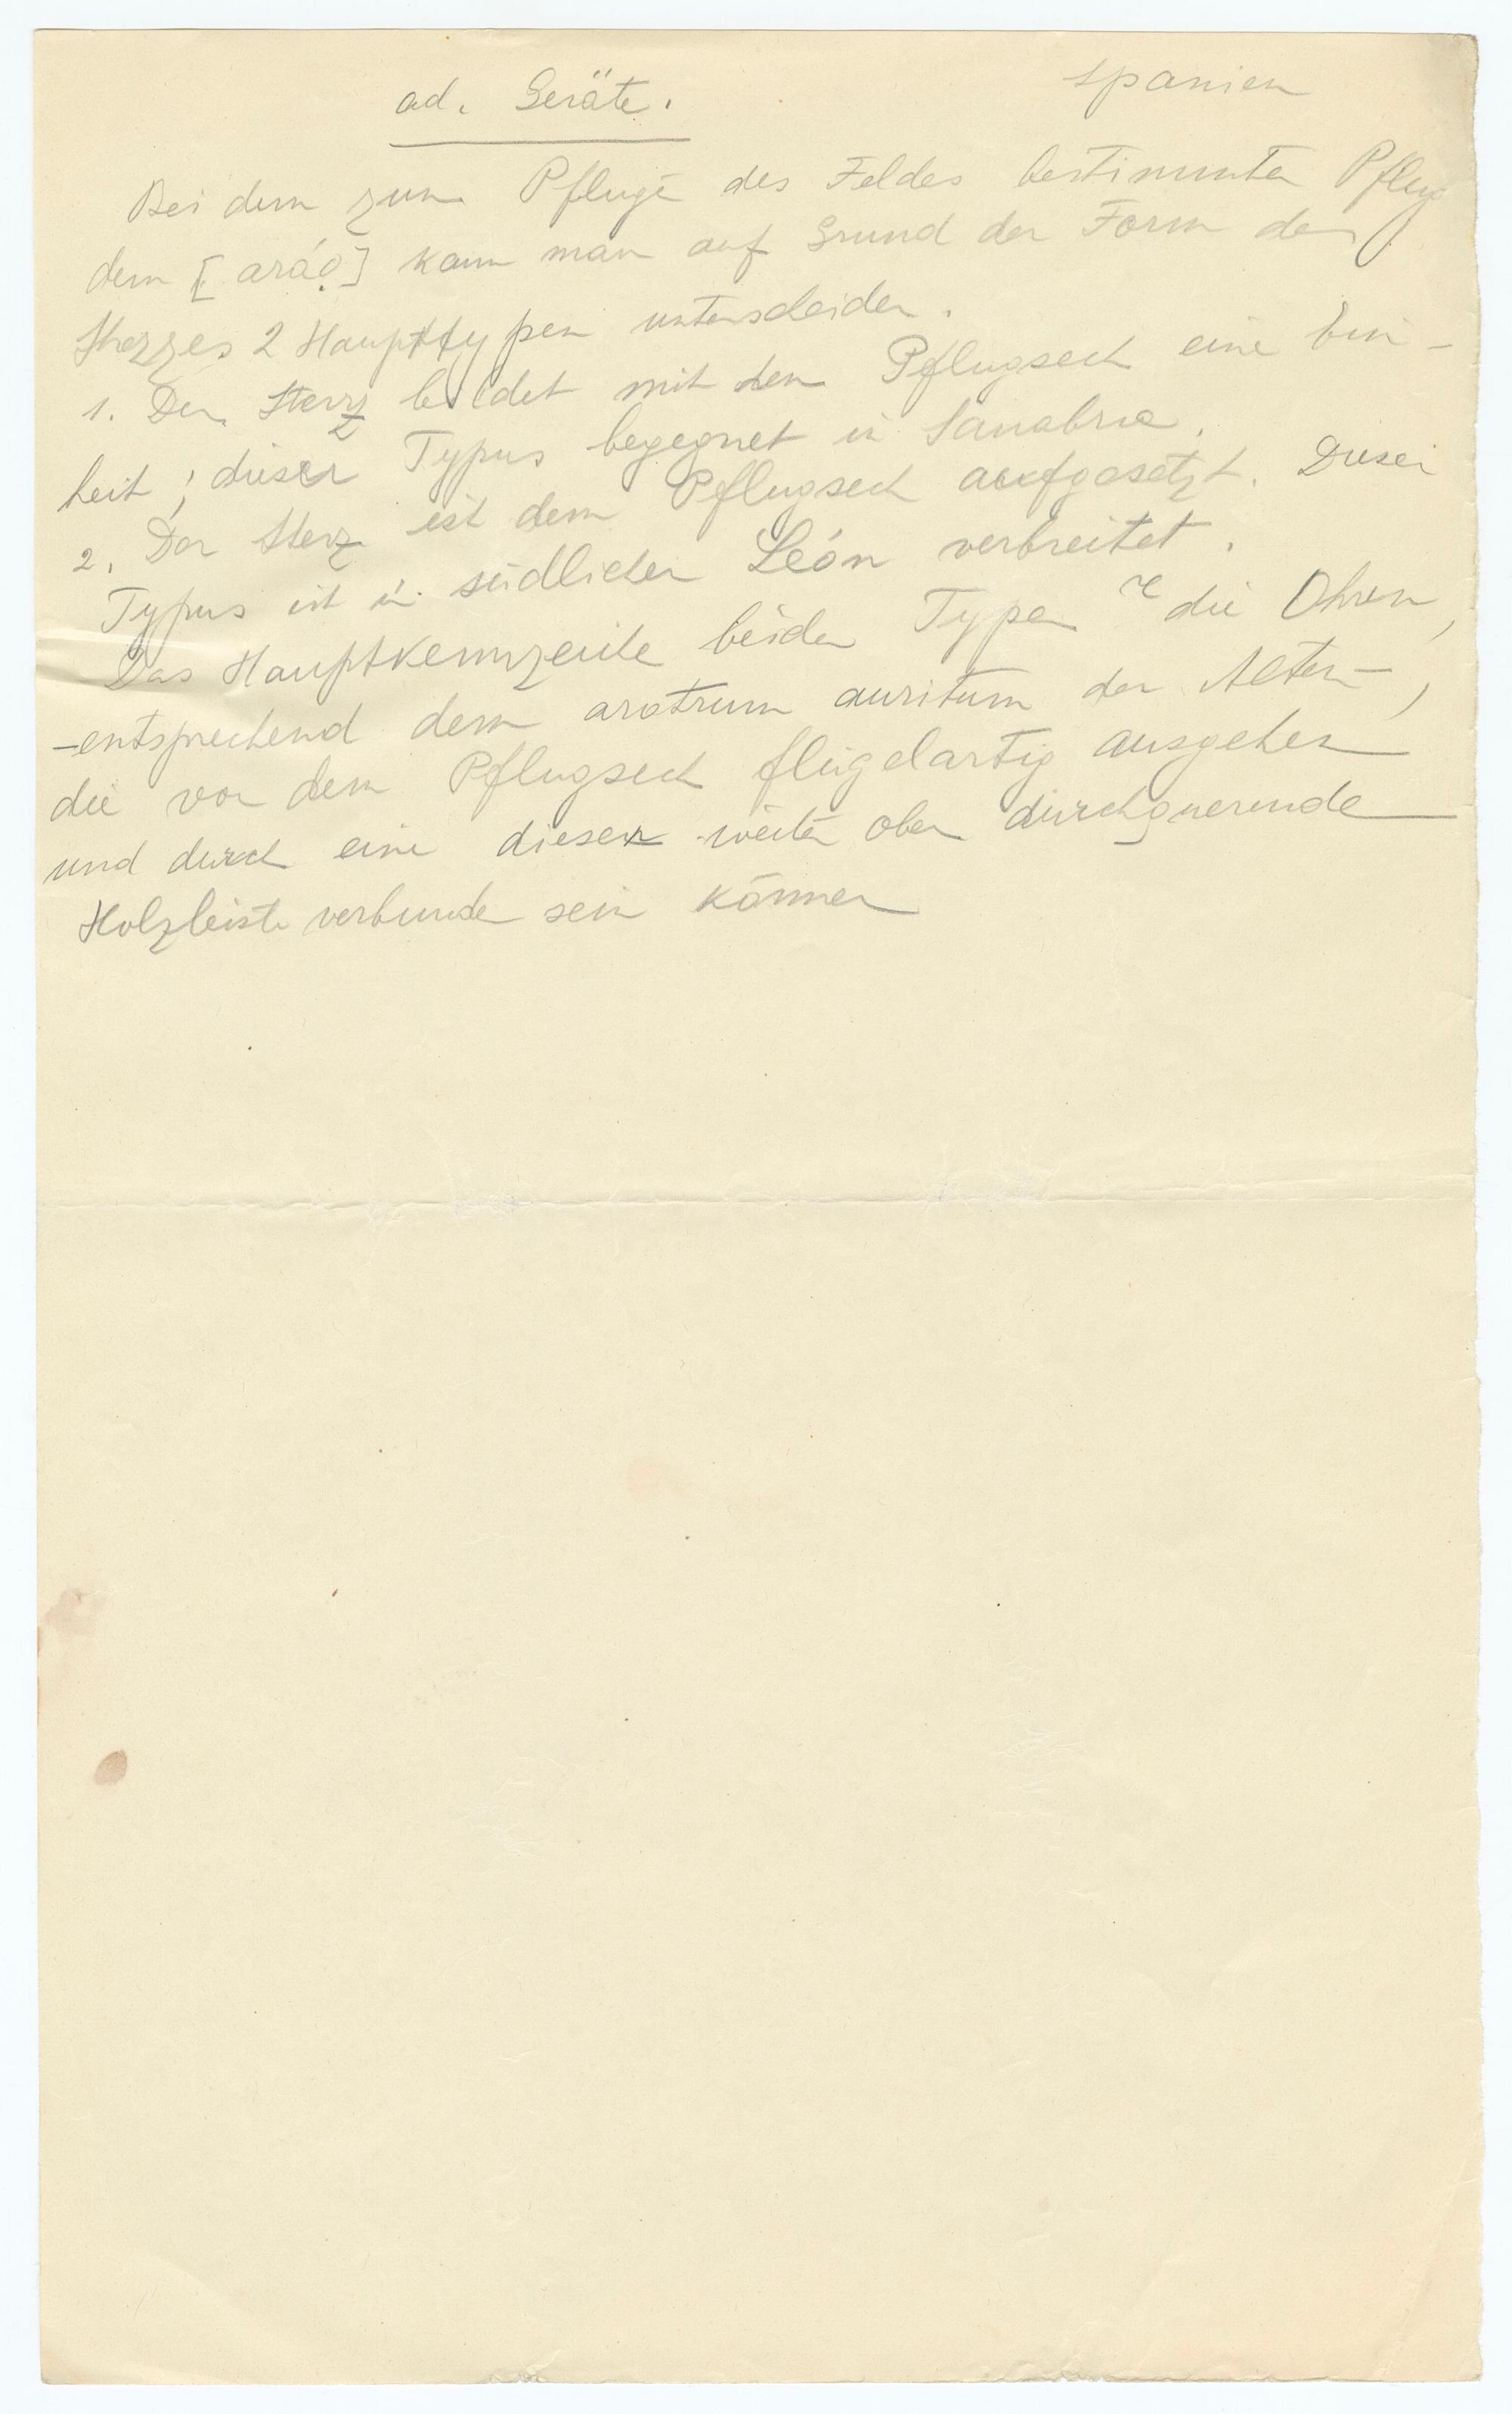 ad. Geräte.
Spanien
Bei dem zum Pfluge des Feldes bestimmten Pflug
dem [aráọ] kann man auf Grund der Form des
Sterzes 2 Haupttypen unterscheiden.
1. Der Sterz bildet mit dem Pflugsech eine Ein-
heit; dieser Typus begegnet in Sanabria.
2. Der Sterz ist dem Pflugsech aufgesetzt. Dieser
Typus ist in südlichen León verbreitet.
Das Hauptkennzeichen beider Typen die Ohren,
-entsprechend dem aratrum auritum der Alten-,
die von dem Pflugsech flügelartig ausgehen
und durch eine diesen weiter oben durchquerende
Holzleiste verbunden sein können